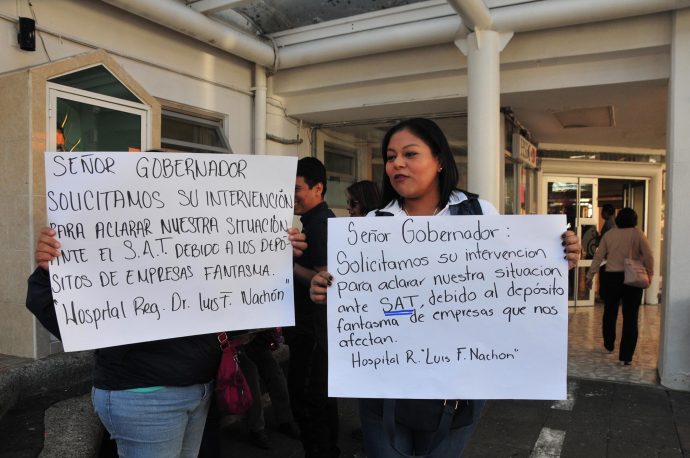 SEÑOR GOBERNADOR
SOLICITAMOS SU INTERVENCIÓN
PARA ACLARAR NUESTRA SITUACIÓN
ANTE EL S.A.T. DEBIDO A LOS DEPÓ-
SITOS DE EMPRESAS FANTASMA.
"Hospital Reg. Dr. Luis F. Nachón"
Señor Gobernador:
Solicitamos su intervencion
para aclarar nuestra situacion
ante SAT, debido al depósito
fantasma de empresas que nos
afectan.
Hospital R. "Luis F. Nachon"